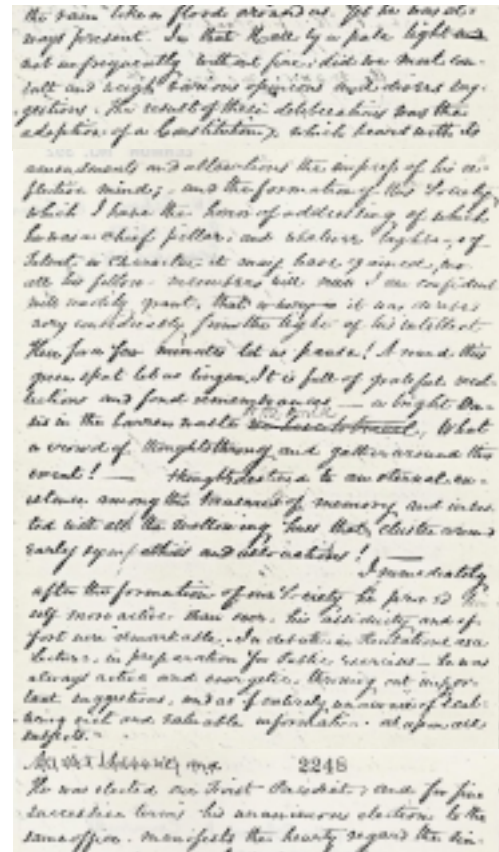 the rain like a flood around us. Yet he was al-
ways present. In that Hall by a pale light and
not unfrequently without fire, did we meet con-
sult and weigh various opinions and divers sug-
gestions. The result of these deliberations was the
adoption of a Constitution, which bears with its
amendments and alterations the impress of his re-
flective mind; and the formation of this Society,
which I have the honor of addressing of which
he was a chief pillar; and whatever of
talent or character it may have gained, we
all his fellow-members will I am confident
will readily grant, that it was derived
very considerably from the light of his intellect.
Here for a few minutes let us pause! Around this
green spot let us linger. It is full of grateful recol-
lections and fond remembrances — a bright Oa-
sis in the barren waste What
a crowd of thoughts throng and gather around this
event! — thoughts destined to an eternal ex-
istence among the treasures of memory and inves-
ted with all the mellowing hues that cluster around
early sympathies and associations! —
Immediately
after the formation of our Society he proved him
self more active than ever. his assiduity and ef-
fort were remarkable. In debate, in Recitations as a
lecturer, in preparation for Public exercises — he was
always active and energetic, throwing out impor-
tant suggestions, and as if entirely unaware of
rich and valuable information upon all
subjects. —
2248
He was elected our First President; and for five
successive terms his unanimous election to the
same office, manifests the hearty regard the